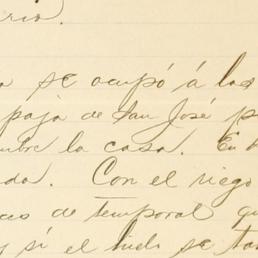 ario.
se ocupó á las
paja de San José p
umbre la casa. En
da. Con el riego
as de temporal qu
y si el hielo se tar